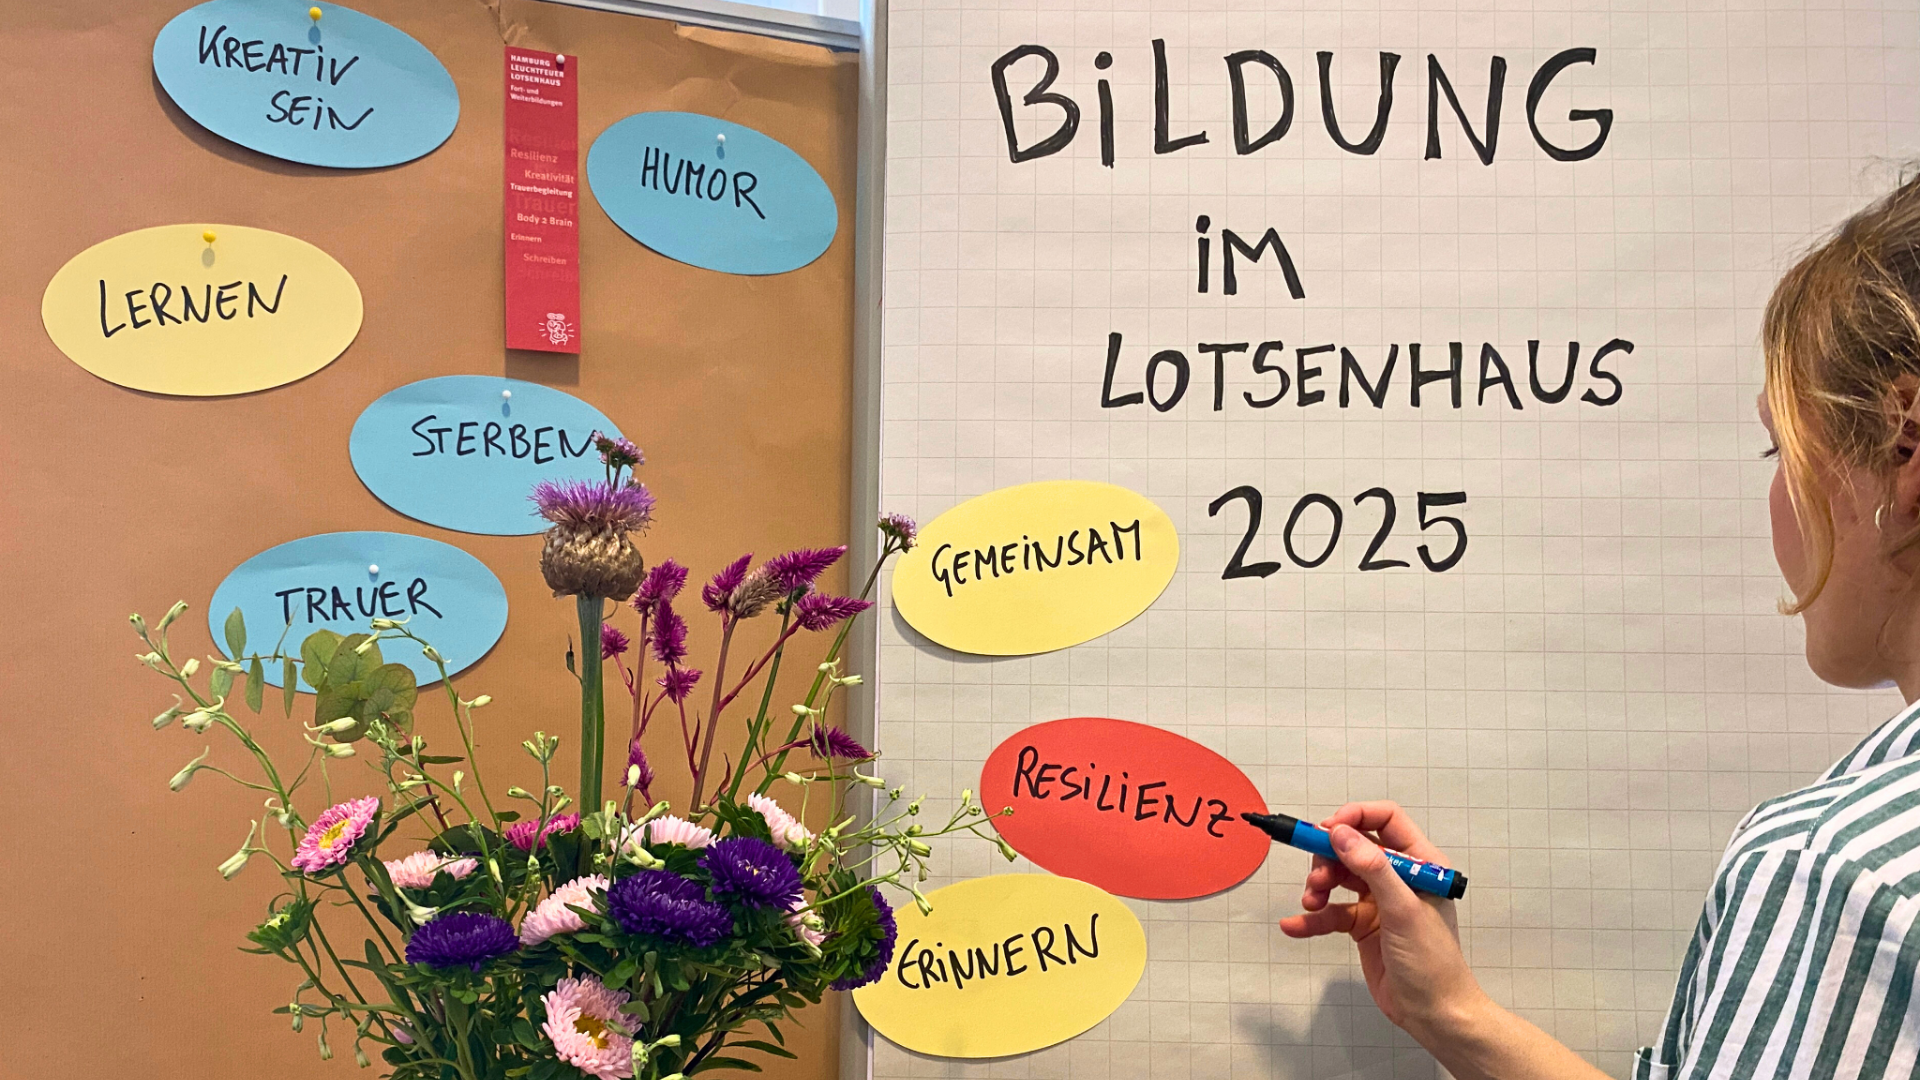 KREATiV
SEiN
HAMBURG
LEUCHTFEUER
LOTSENHAUS
Fort- und
Weiterbildungen
Resilienz
Kreativität
Trauerbegleitung
Trauer
Body 2 Brain
Erinnern
Schreiben
HUMOR
LERNEN
STERBEN
TRAUER
BiLDUNG
iM
LOTSENHAUS
2025
GEMEiNSAM
RESiLiENZ
ERiNNERN